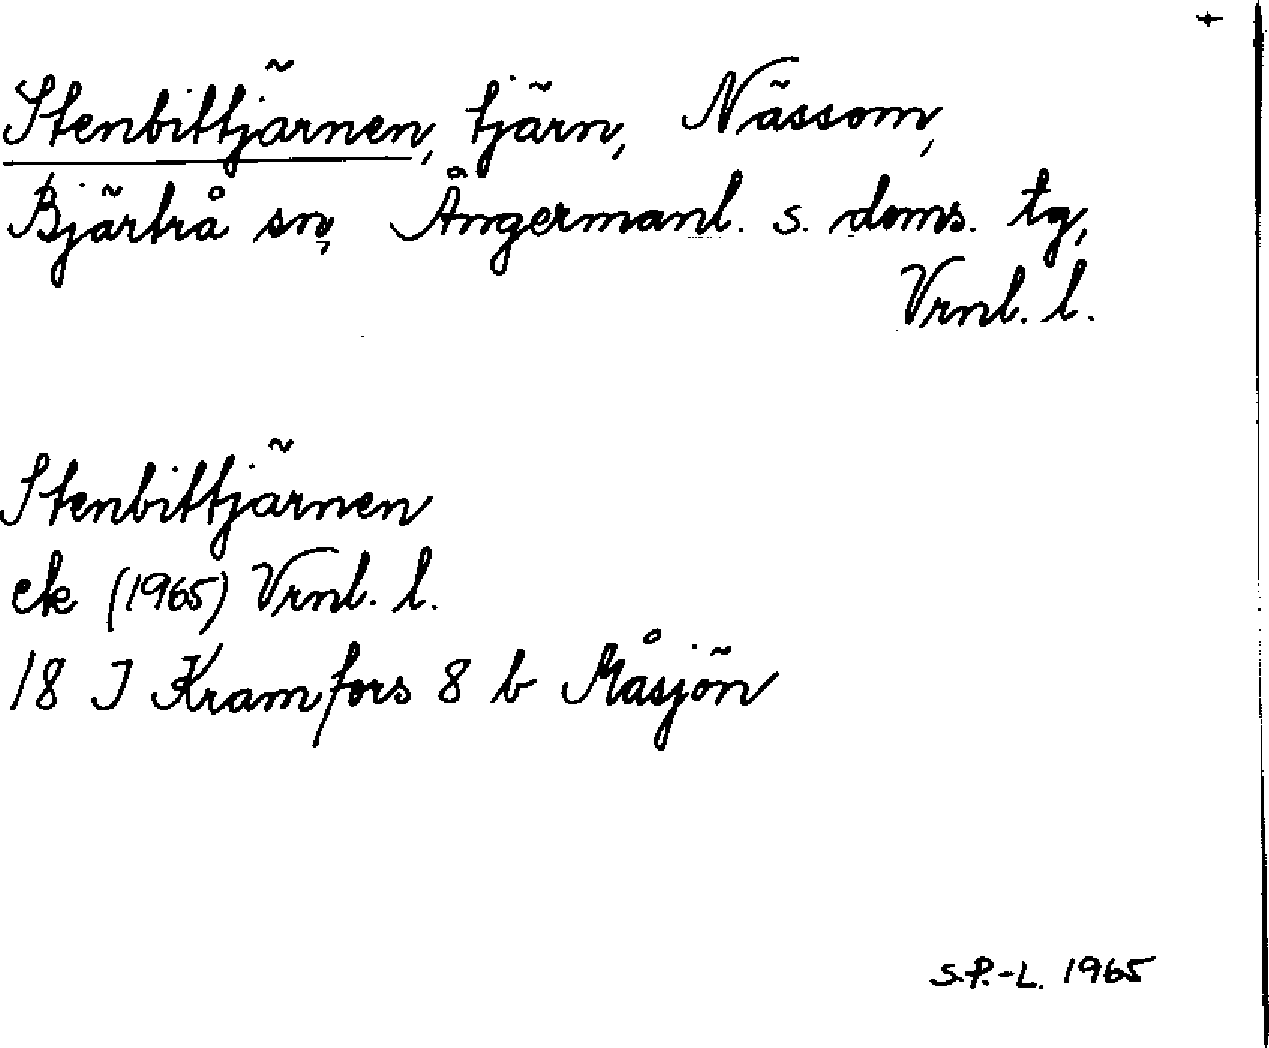 +
Stenbittjärnen, tjärn, Nässom,
Bjärtrå sn, Ångermanl. s. doms. tg,
Vrnl. l.
Stenbittjärnen
ek (1965) Vrnl. l.
18 I Kramfors 8 b Måsjön
S.P.-L. 1965